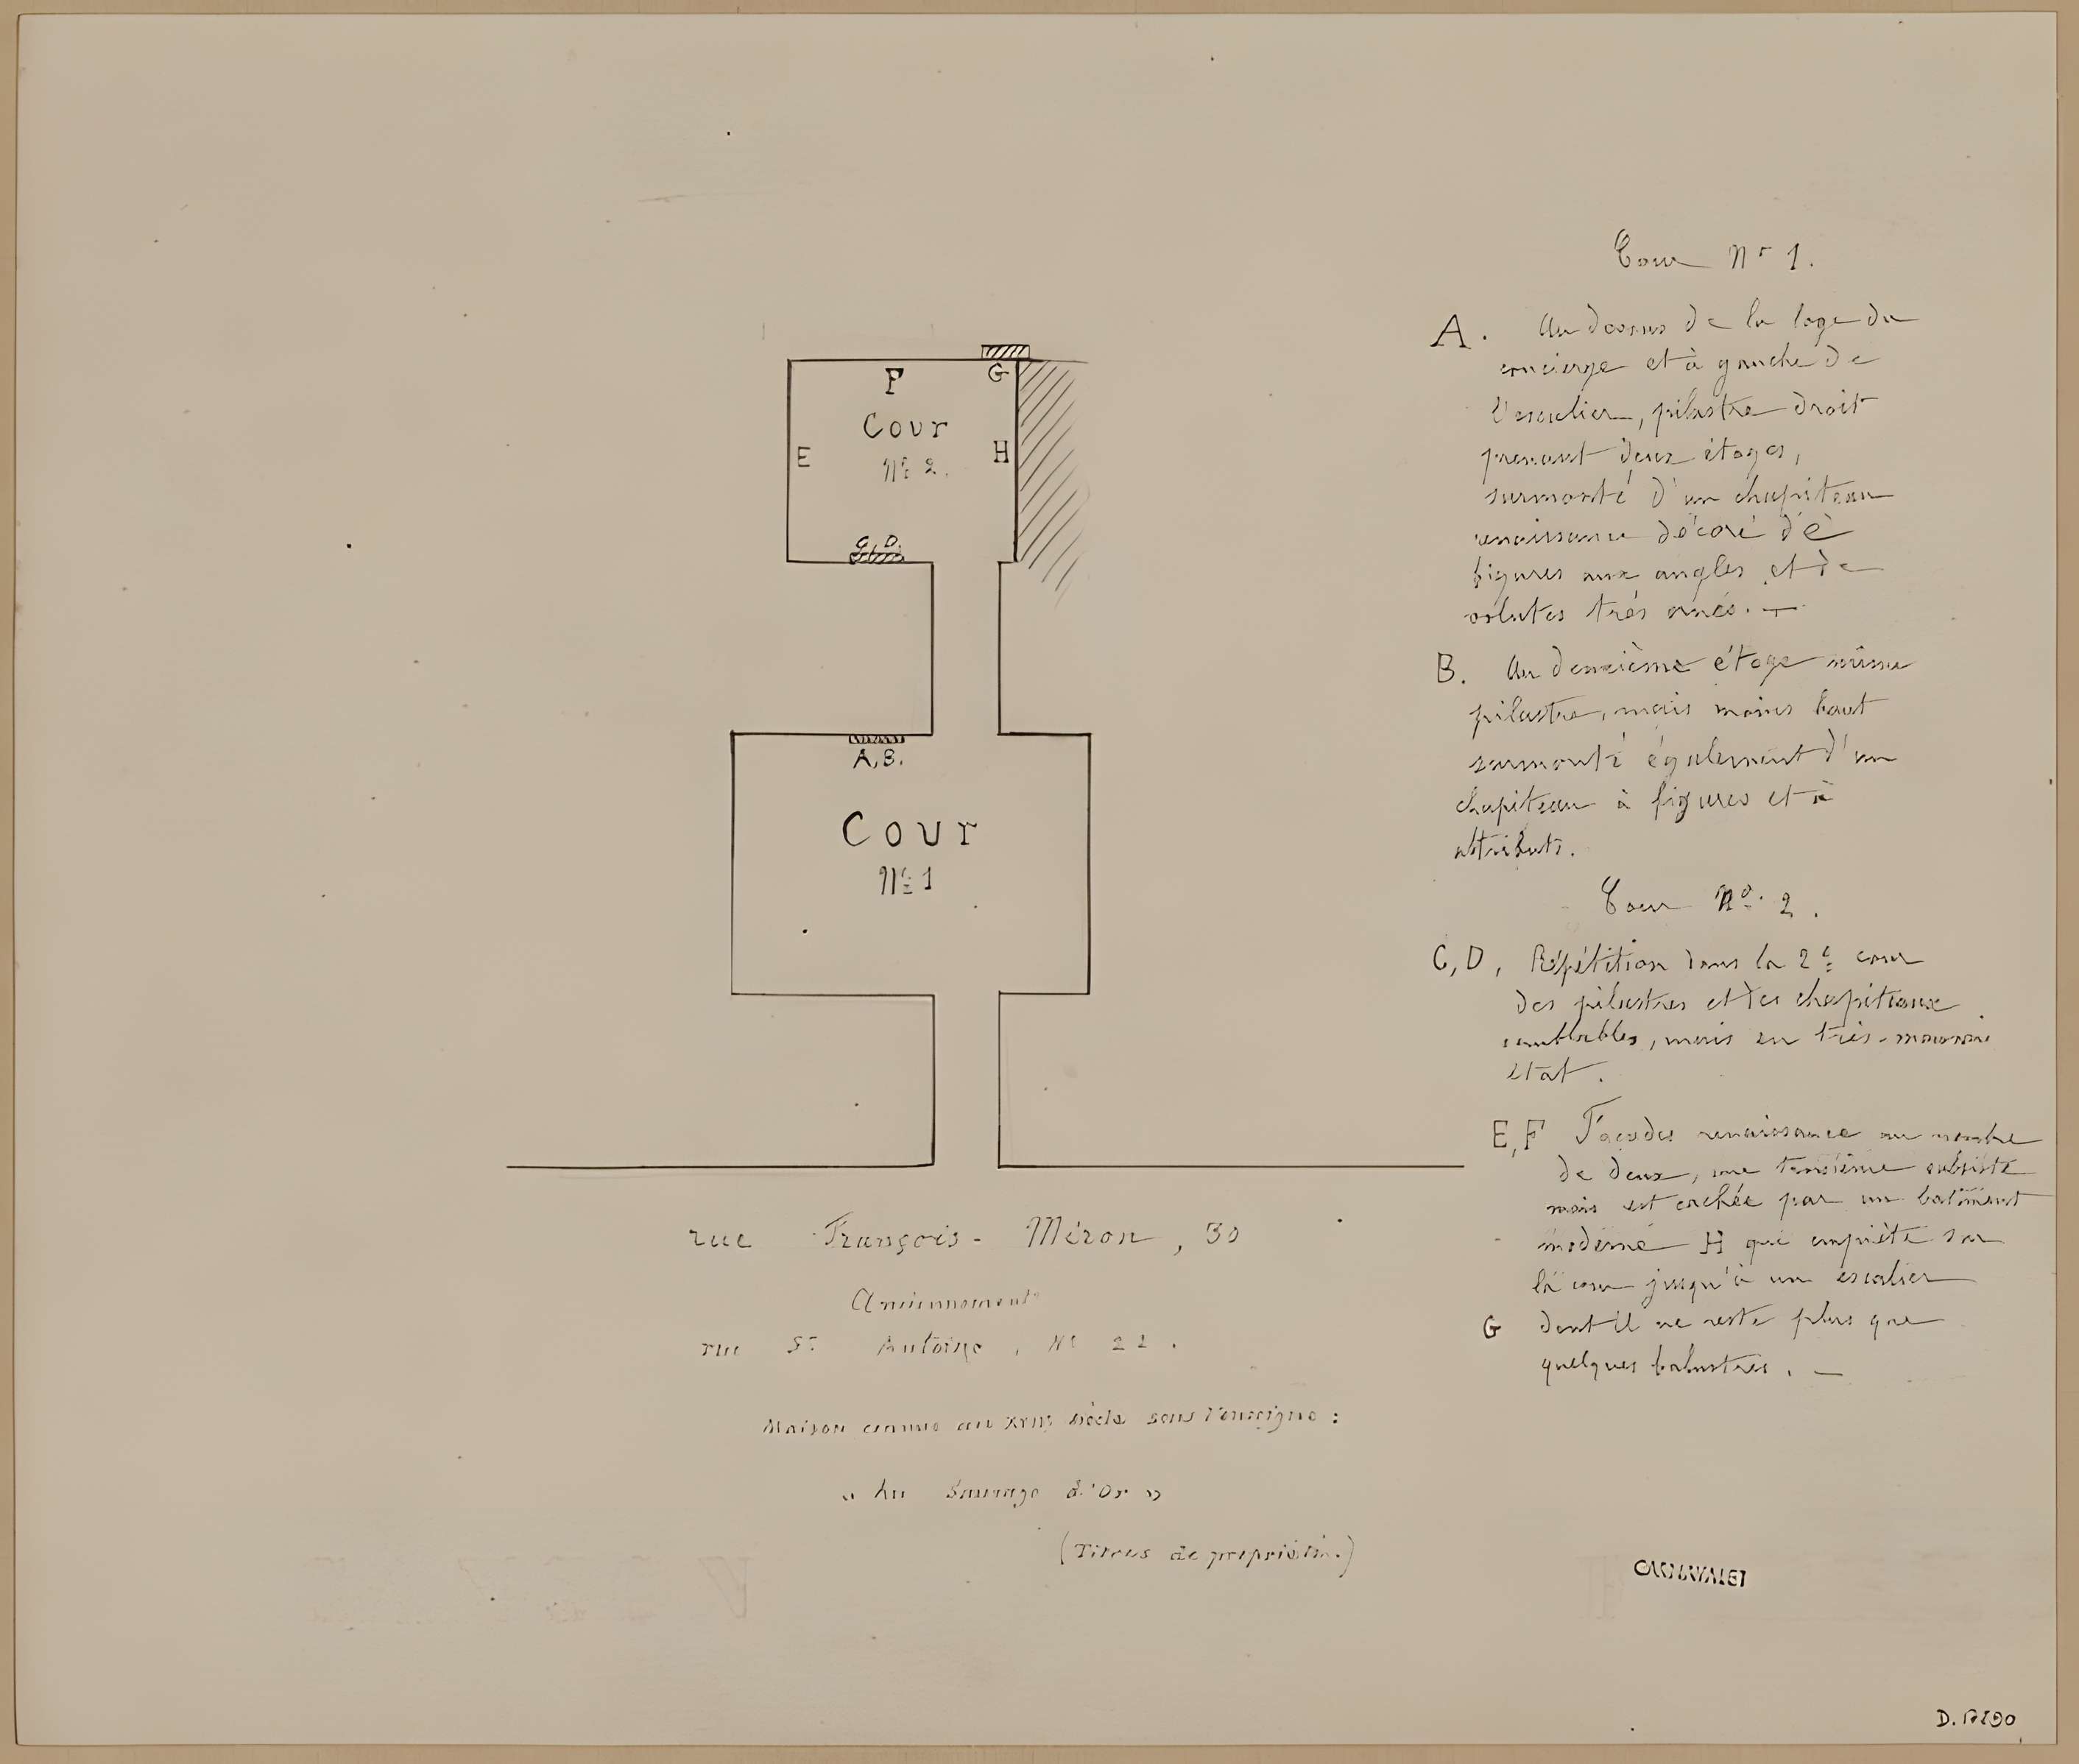 F
G
Cour
E
H
Nº 2.
C, D.
A, B.
Cour
Nº 1
rue François-Miron, 30
Anciennement
rue St Antoine, Nº 22.
Maison connue au XVIIIe siècle sous l'enseigne :
« Au Sauvage d'Or »
(Titres de propriété.)
Cour Nº 1.
A. Au dessus de la loge du
concierge et à gauche de
l'escalier, pilastre droit
prenant deux étages,
surmonté d'un chapiteau
renaissance décoré de
figures aux angles et de
volutes très ornés. —
B. Au deuxième étage même
pilastre, mais moins haut
surmonté également d'un
chapiteau à figures et à
attributs.
Cour Nº. 2.
C, D, Répétition dans la 2e cour
des pilastres et des chapiteaux
semblables, mais en très-mauvais
état.
E, F Façades renaissance au nombre
de deux, une troisième subsiste
mais est cachée par un batiment
moderne H qui empiète sur
la cour jusqu'à un escalier
G dont il ne reste plus que
quelques balustres. —
CARNAVALET